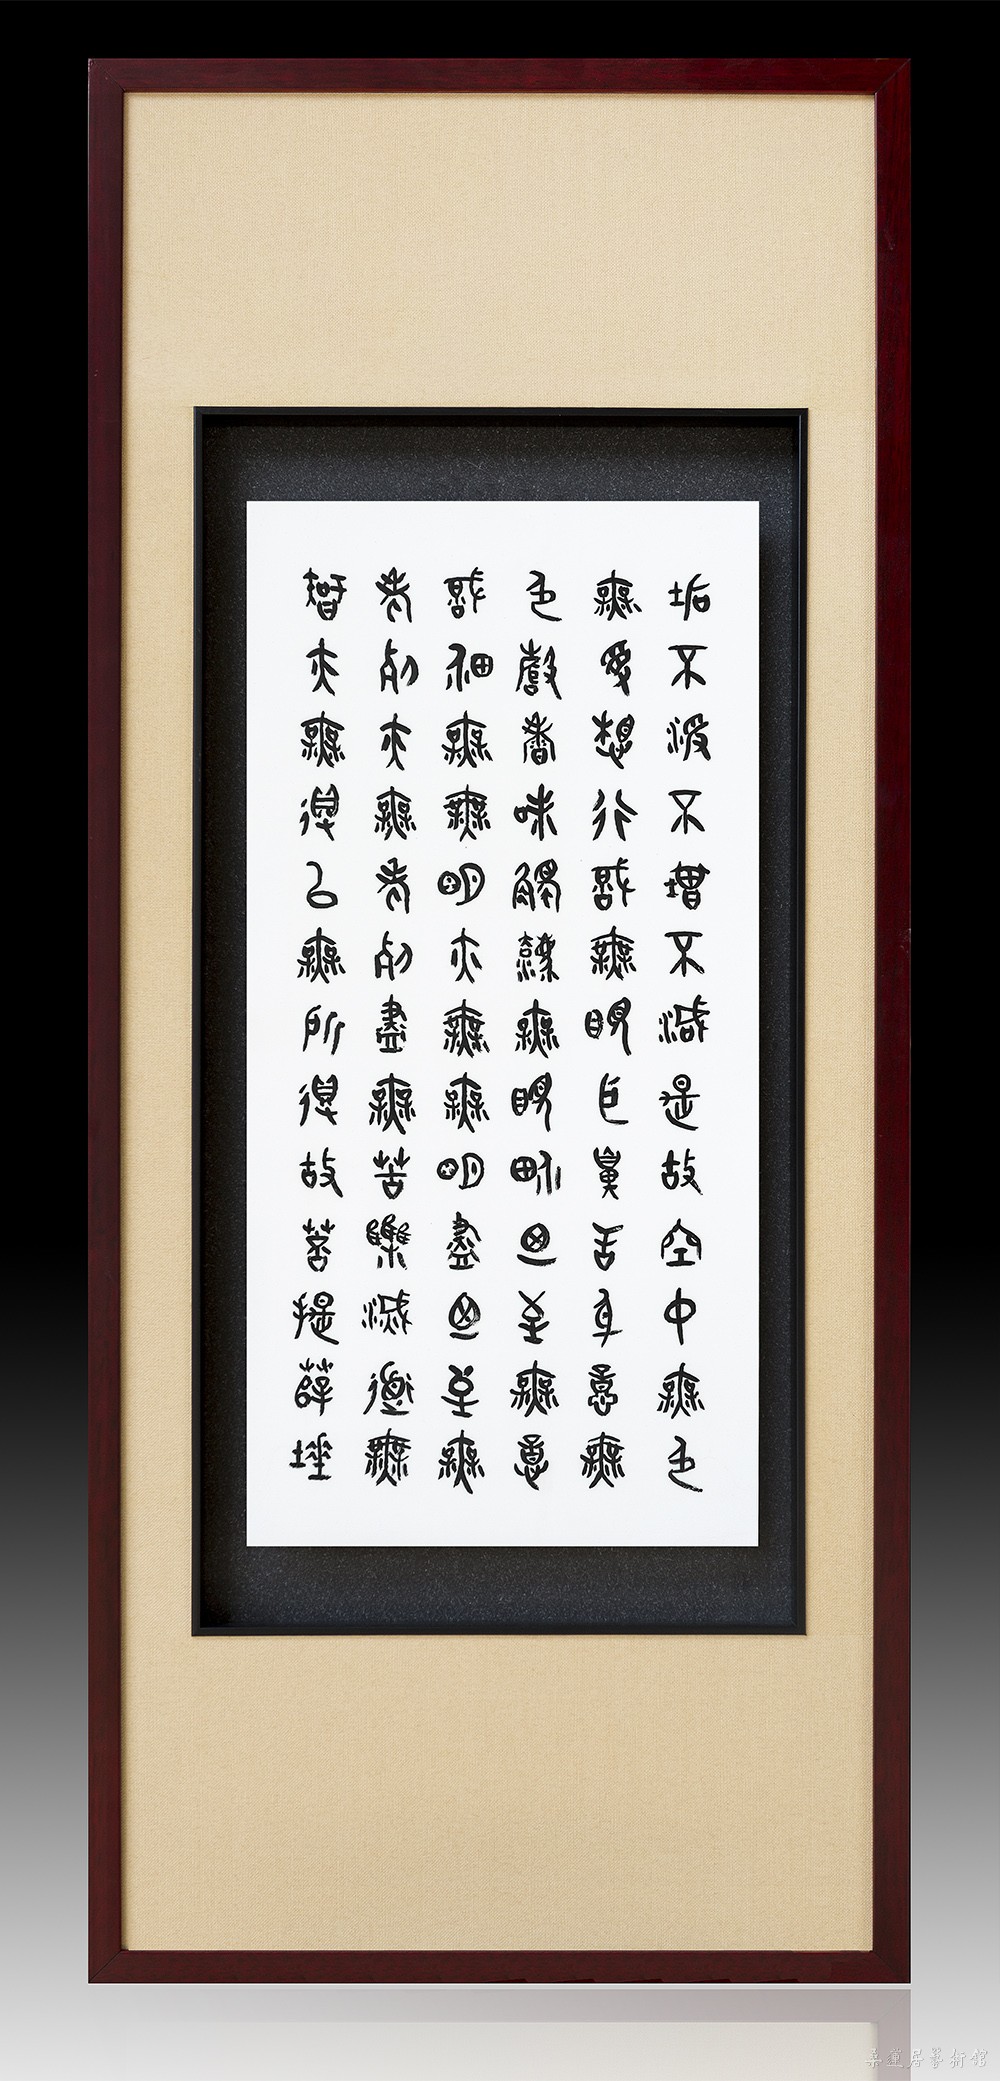 垢不淨不增不減是故空中無色
無受想行識無眼耳鼻舌身意無
色聲香味觸法無眼界乃至無意
識界無無明亦無無明盡乃至無
老死亦無老死盡無苦集滅道無
智亦無得以無所得故菩提薩埵